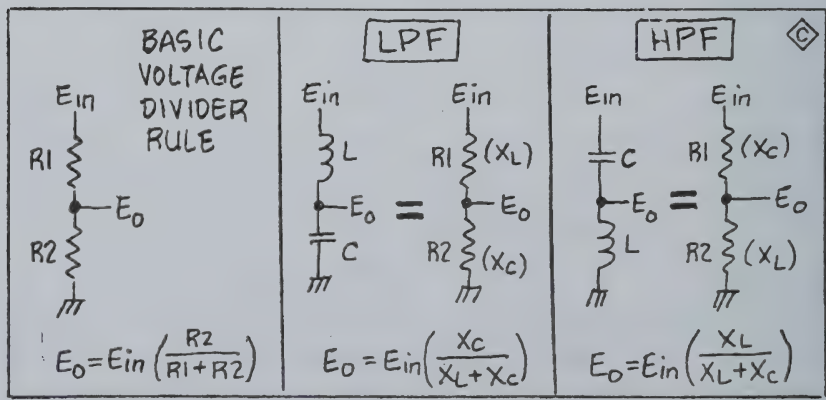 BASIC
VOLTAGE
DIVIDER
RULE
Ein
R1
Eo
R2
Eo = Ein (R2 / R1 + R2)
LPF
Ein
L
Eo
C
=
Ein
R1 (XL)
Eo
R2 (XC)
Eo = Ein (XC / XL + XC)
HPF
C
Ein
C
Eo
L
=
Ein
R1 (XC)
Eo
R2 (XL)
Eo = Ein (XL / XL + XC)